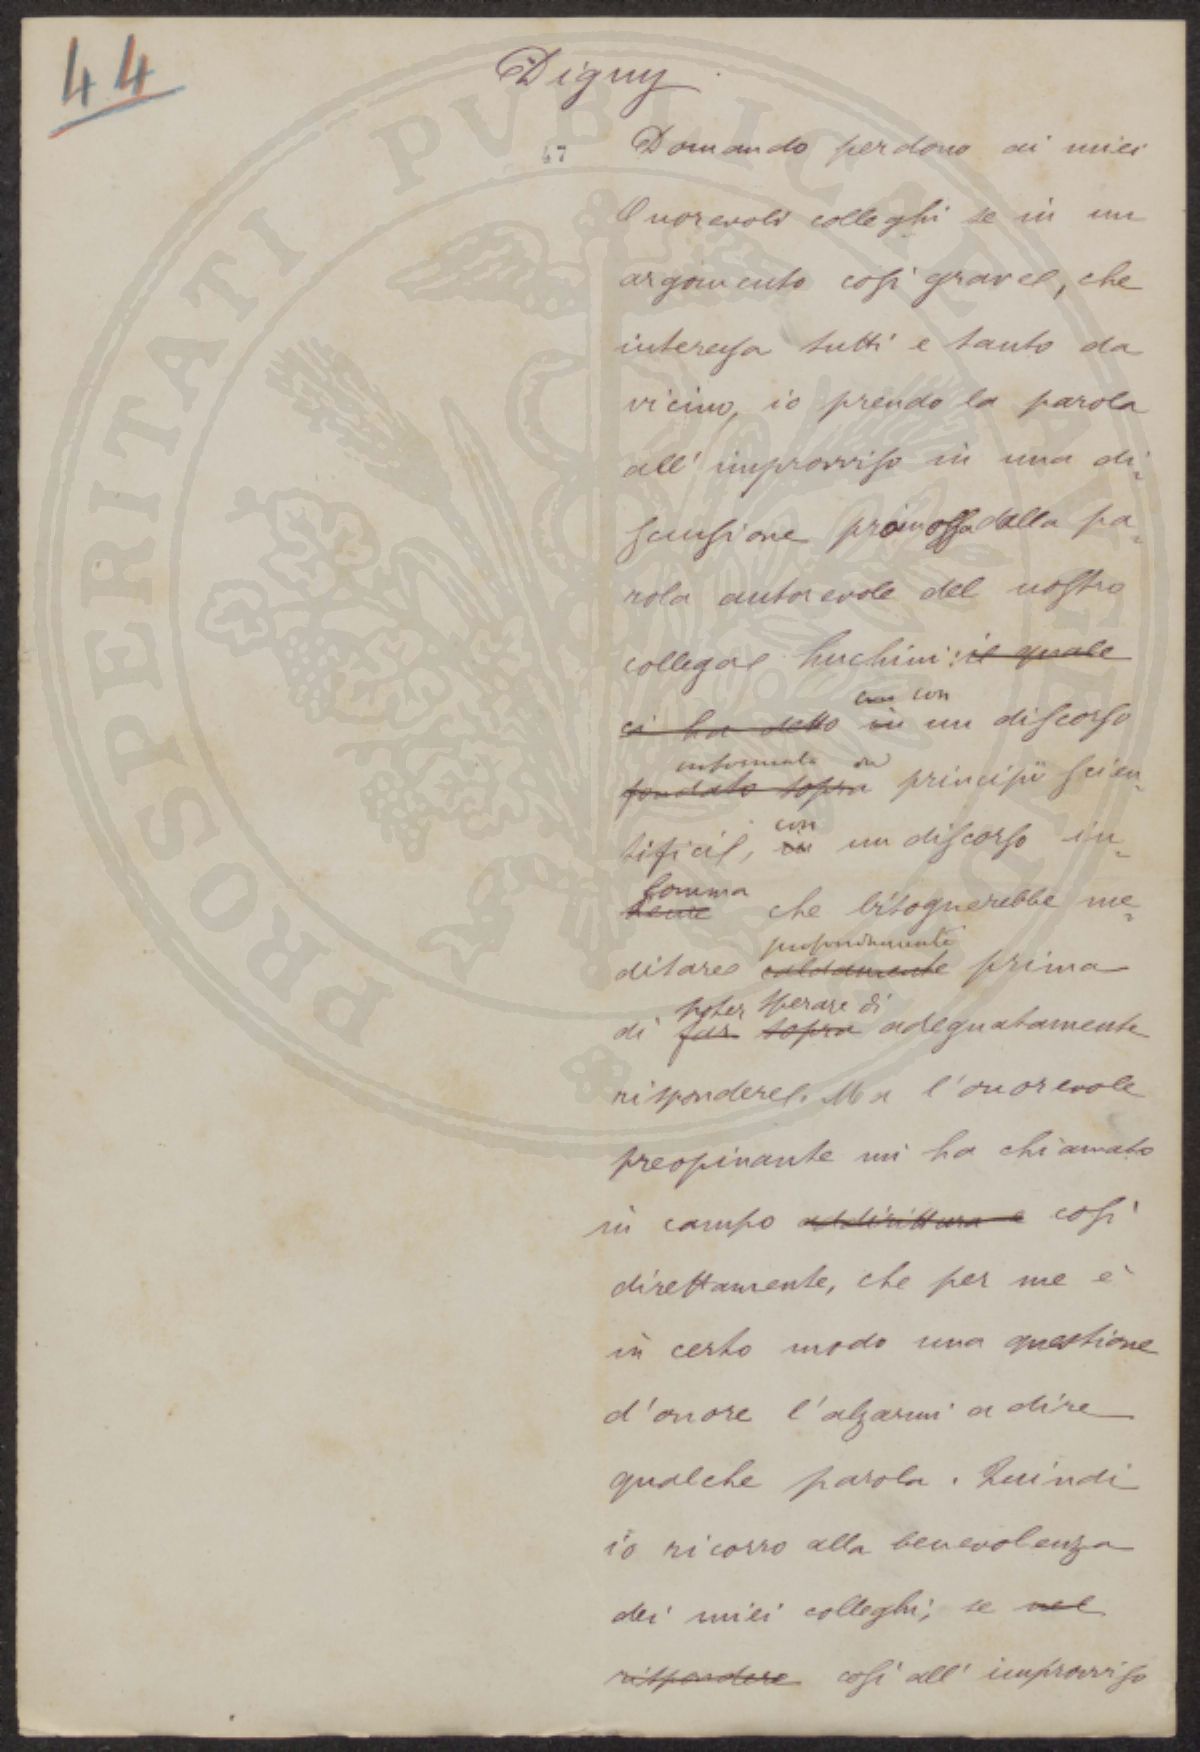 44
Digny
47
Domando perdono ai miei
Onorevoli colleghi se in un
argomento così grave, che
interessa tutti e tanto da
vicino, io prendo la parola
all'improvviso in una di=
scussione promossa dalla pa=
rola autorevole del nostro
collega Luchini: il quale
con con
ci ha detto in un discorso
informato da
fondato sopra principii scien=
con
tifici, in un discorso in=
somma
che bisognerebbe me=
profondamente
ditare caldamente prima
poter sperare di
di far sopra adeguatamente
rispondere. Ma l'onorevole
preopinante mi ha chiamato
in campo addirittura e così
direttamente, che per me è
in certo modo una questione
d'onore l'alzarmi a dire
qualche parola. Quindi
io ricorro alla benevolenza
dei miei colleghi, se nel
rispondere così all'improvviso
PROSPERITATI PVBLICAE AVGENDAE